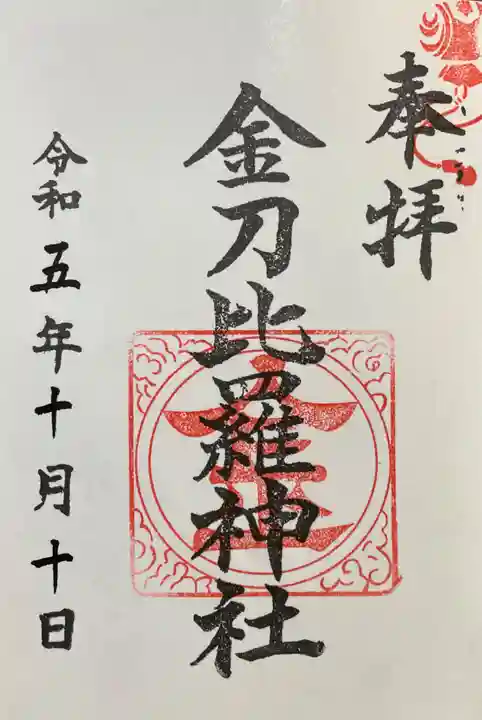 奉拝
金刀比羅神社
令和五年十月十日